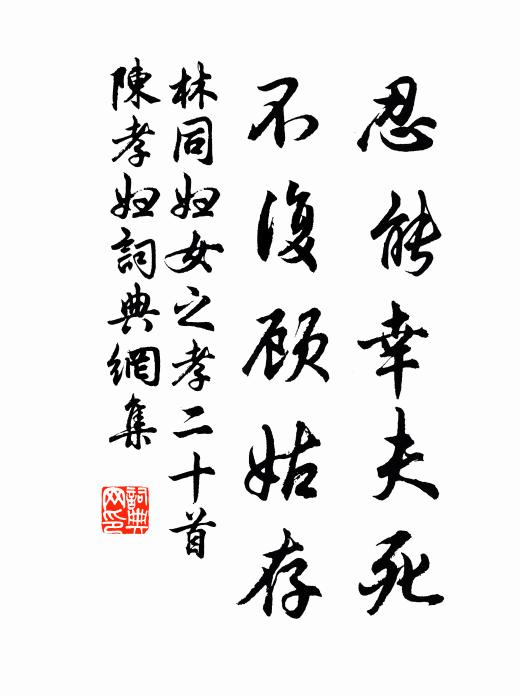 忍能幸夫死
不復顾姑存
林同妇女之孝二十首
陳孝妇詞典網集
詞典网印